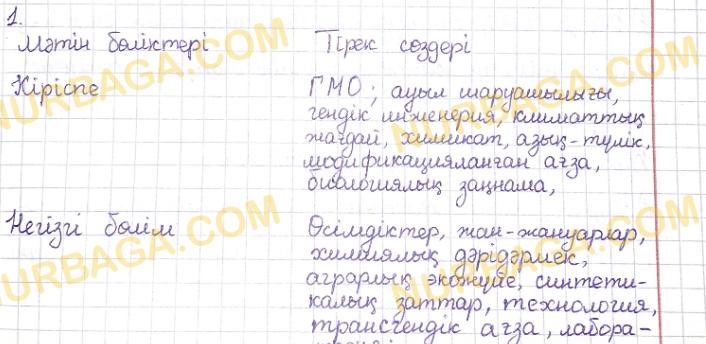 1.
Мәтін бөліктері Тірек сөздері
Кіріспе ГМО; ауыл шаруашылығы,
гендік инженерия, климаттық
жағдай, химикат, азық-түлік,
модификацияланған ағза,
биологиялық заңнама,
Негізгі бөлім Өсімдіктер, жан-жануарлар,
химиялық дәрідәрмек,
аграрлық экожүйе, синтети-
калық заттар, технология,
трансгендік ағза, лабора-
NURBAGA.COM
NURBAGA.COM
NURBAGA.COM
NURBAGA.COM